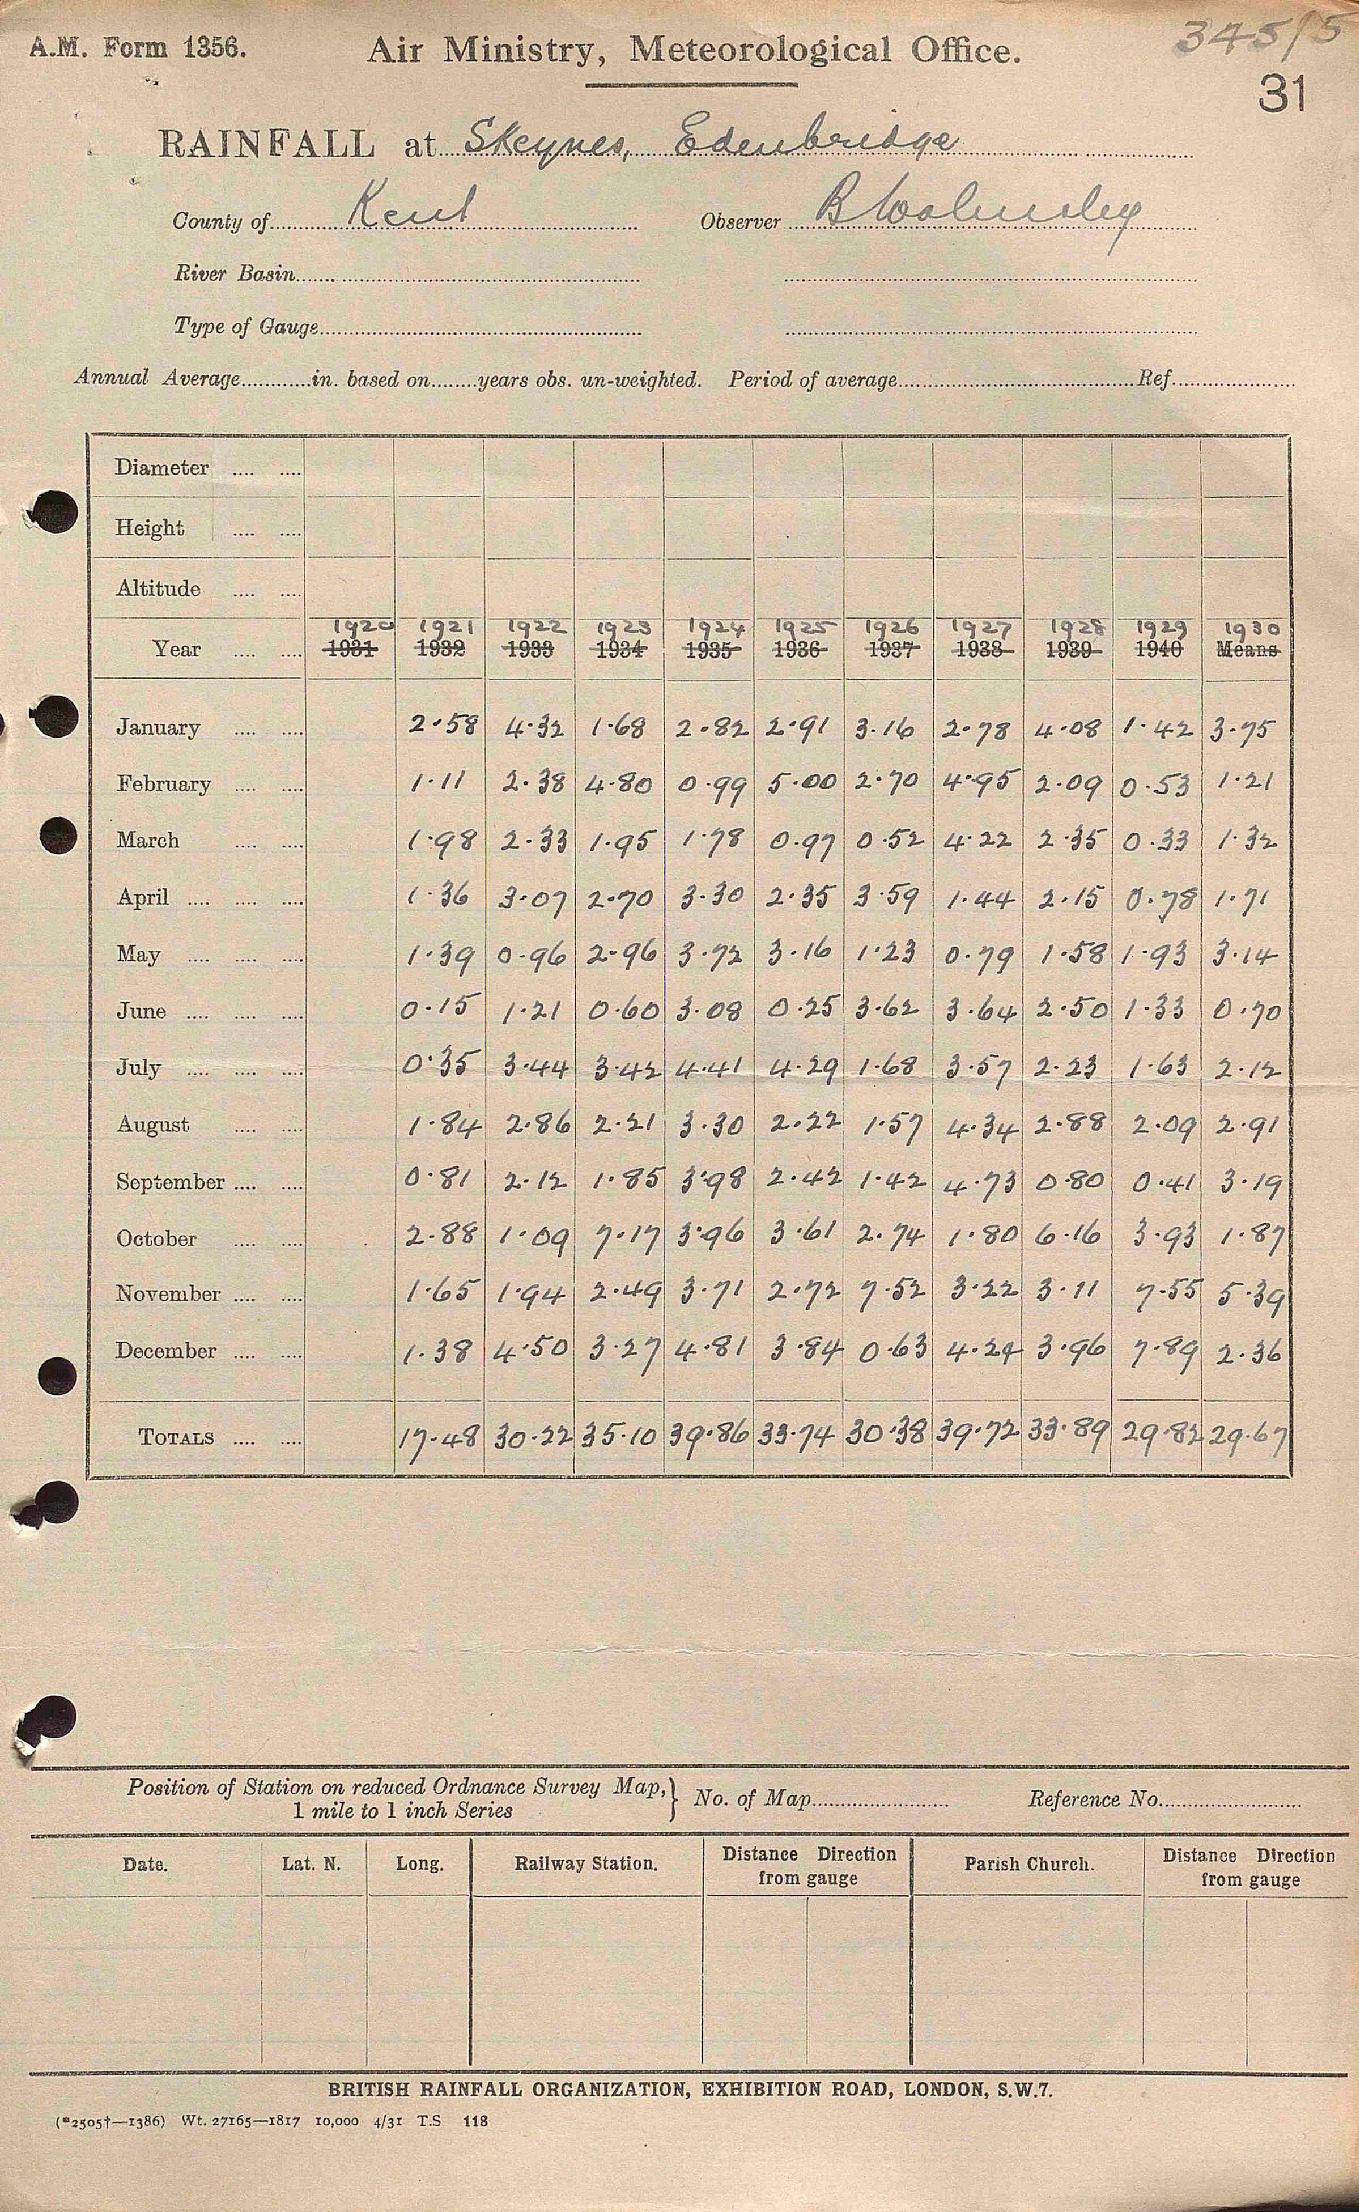 A.M. Form 1356.
Air Ministry, Meteorological Office.
345/5
31
RAINFALL at Skeynes, Edenbridge
County of Kent Observer B Wolmsley
River Basin
Type of Gauge
Annual Average in. based on years obs. un-weighted. Period of average Ref.
Diameter
Height
Altitude
1920 1921 1922 1923 1924 1925 1926 1927 1928 1929 1930
Year 1931 1932 1933 1934 1935 1936 1937 1938 1939 1940 Means
January 2.58 4.32 1.68 2.82 2.91 3.16 2.78 4.08 1.42 3.75
February 1.11 2.38 4.80 0.99 5.00 2.70 4.95 2.09 0.53 1.21
March 1.98 2.33 1.95 1.78 0.97 0.52 4.22 2.35 0.33 1.32
April 1.36 3.07 2.70 3.30 2.35 3.59 1.44 2.15 0.78 1.71
May 1.39 0.96 2.96 3.72 3.16 1.23 0.79 1.58 1.93 3.14
June 0.15 1.21 0.60 3.08 0.25 3.62 3.64 2.50 1.33 0.70
July 0.35 3.44 3.42 4.41 4.29 1.68 3.57 2.23 1.63 2.12
August 1.84 2.86 2.21 3.30 2.22 1.57 4.34 2.88 2.09 2.91
September 0.81 2.12 1.85 3.98 2.42 1.42 4.73 0.80 0.41 3.19
October 2.88 1.09 7.17 3.96 3.61 2.74 1.80 6.16 3.93 1.87
November 1.65 1.94 2.49 3.71 2.72 7.52 3.22 3.11 7.55 5.39
December 1.38 4.50 3.27 4.81 3.84 0.63 4.24 3.96 7.89 2.36
TOTALS 17.48 30.22 35.10 39.86 33.74 30.38 39.72 33.89 29.82 29.67
Position of Station on reduced Ordnance Survey Map,} No. of Map Reference No.
1 mile to 1 inch Series
Date. Lat. N. Long. Railway Station. Distance Direction from gauge Parish Church. Distance Direction from gauge
BRITISH RAINFALL ORGANIZATION, EXHIBITION ROAD, LONDON, S.W.7.
(*2505†—1386) Wt. 27165—1817 10,000 4/31 T.S 118